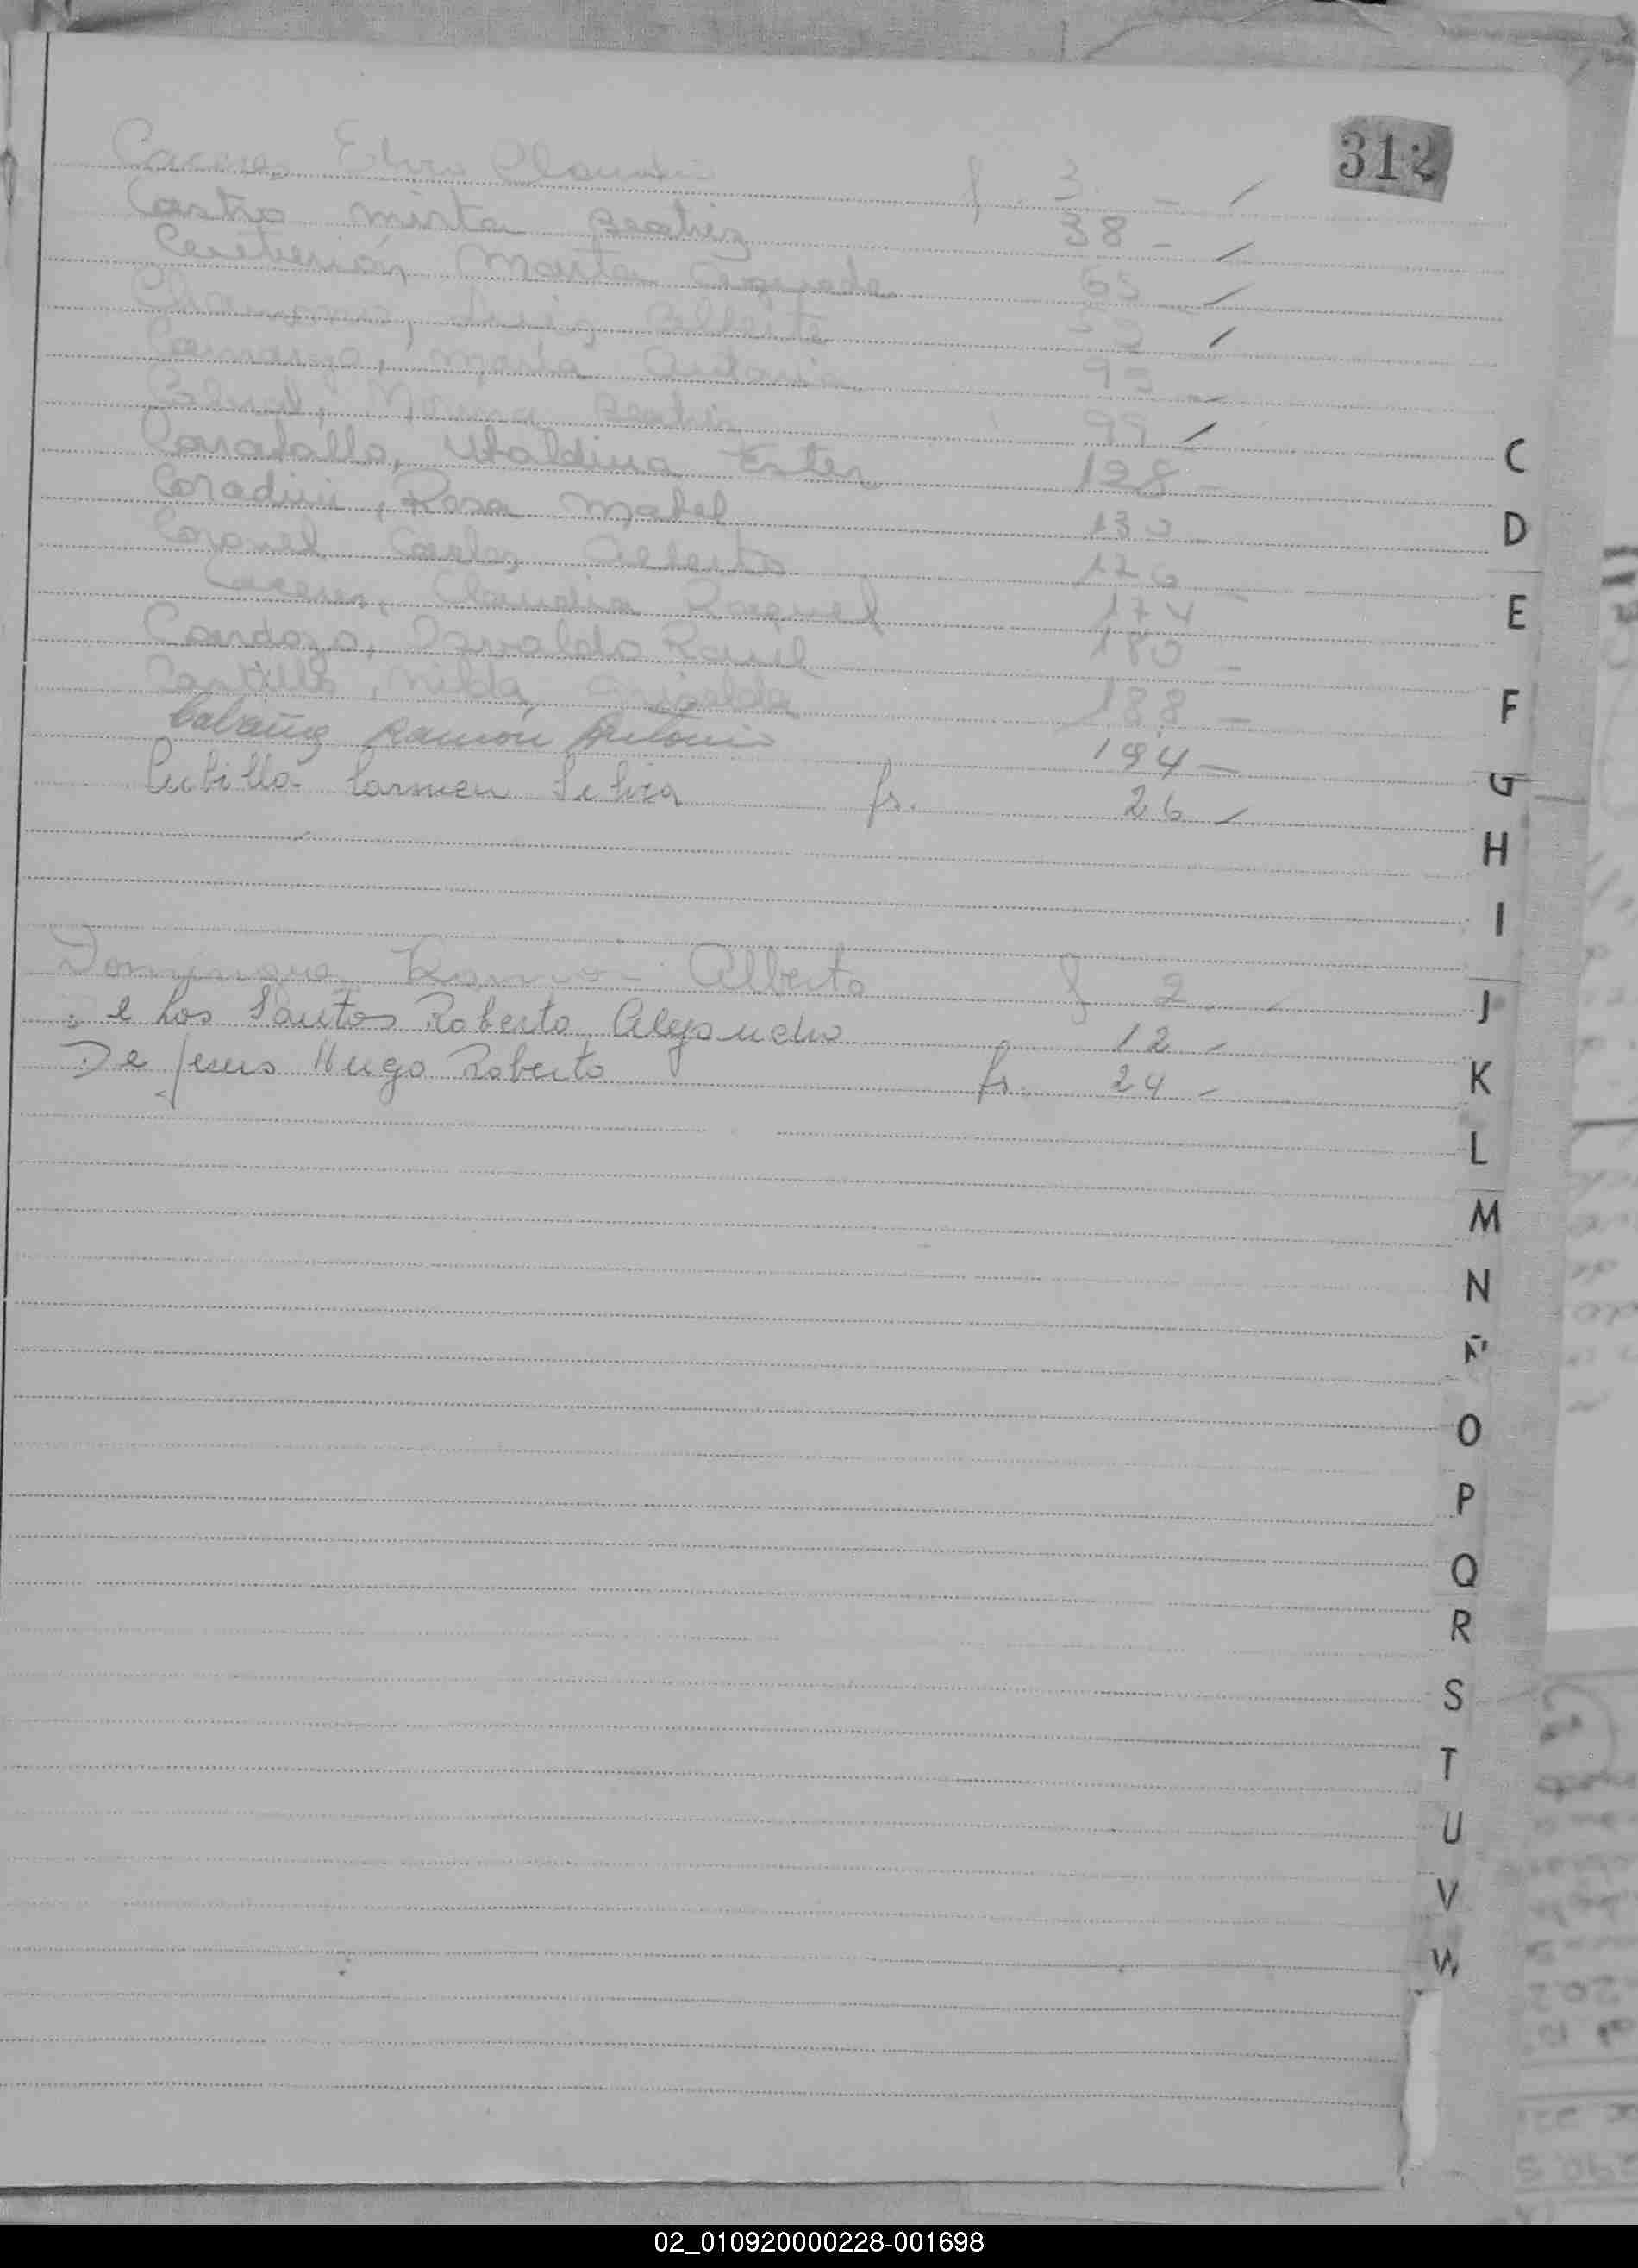 312
Caceres Elvio Claudio f. 3. - /
Castro Mirta Beatriz 38 - /
Marta 55 - /
Luis Alberto /
Camargo, Maria Antonia 95 -
Cabral, Norma Beatriz 99 /
Caraballo, Ubaldina Ester 128 -
Coradini, Rosa Mabel 130 -
Coronel Carlos Alberto 126 -
Caceres, Claudia Raquel 174
Cardozo, Osvaldo Raul 180 -
Castillo, Nilda Griselda 188 -
Cabañas Ramón Antonio 194 -
Cubilla Carmen fs. 26 -
Dominguez Ramon Alberto f 2. -
De Los Santos Roberto Alejandro 12 -
De Jesus Hugo Roberto fs. 24 -
C
D
E
F
G
H
I
J
K
L
M
N
Ñ
O
P
Q
R
S
T
U
V
W
02_010920000228-001698